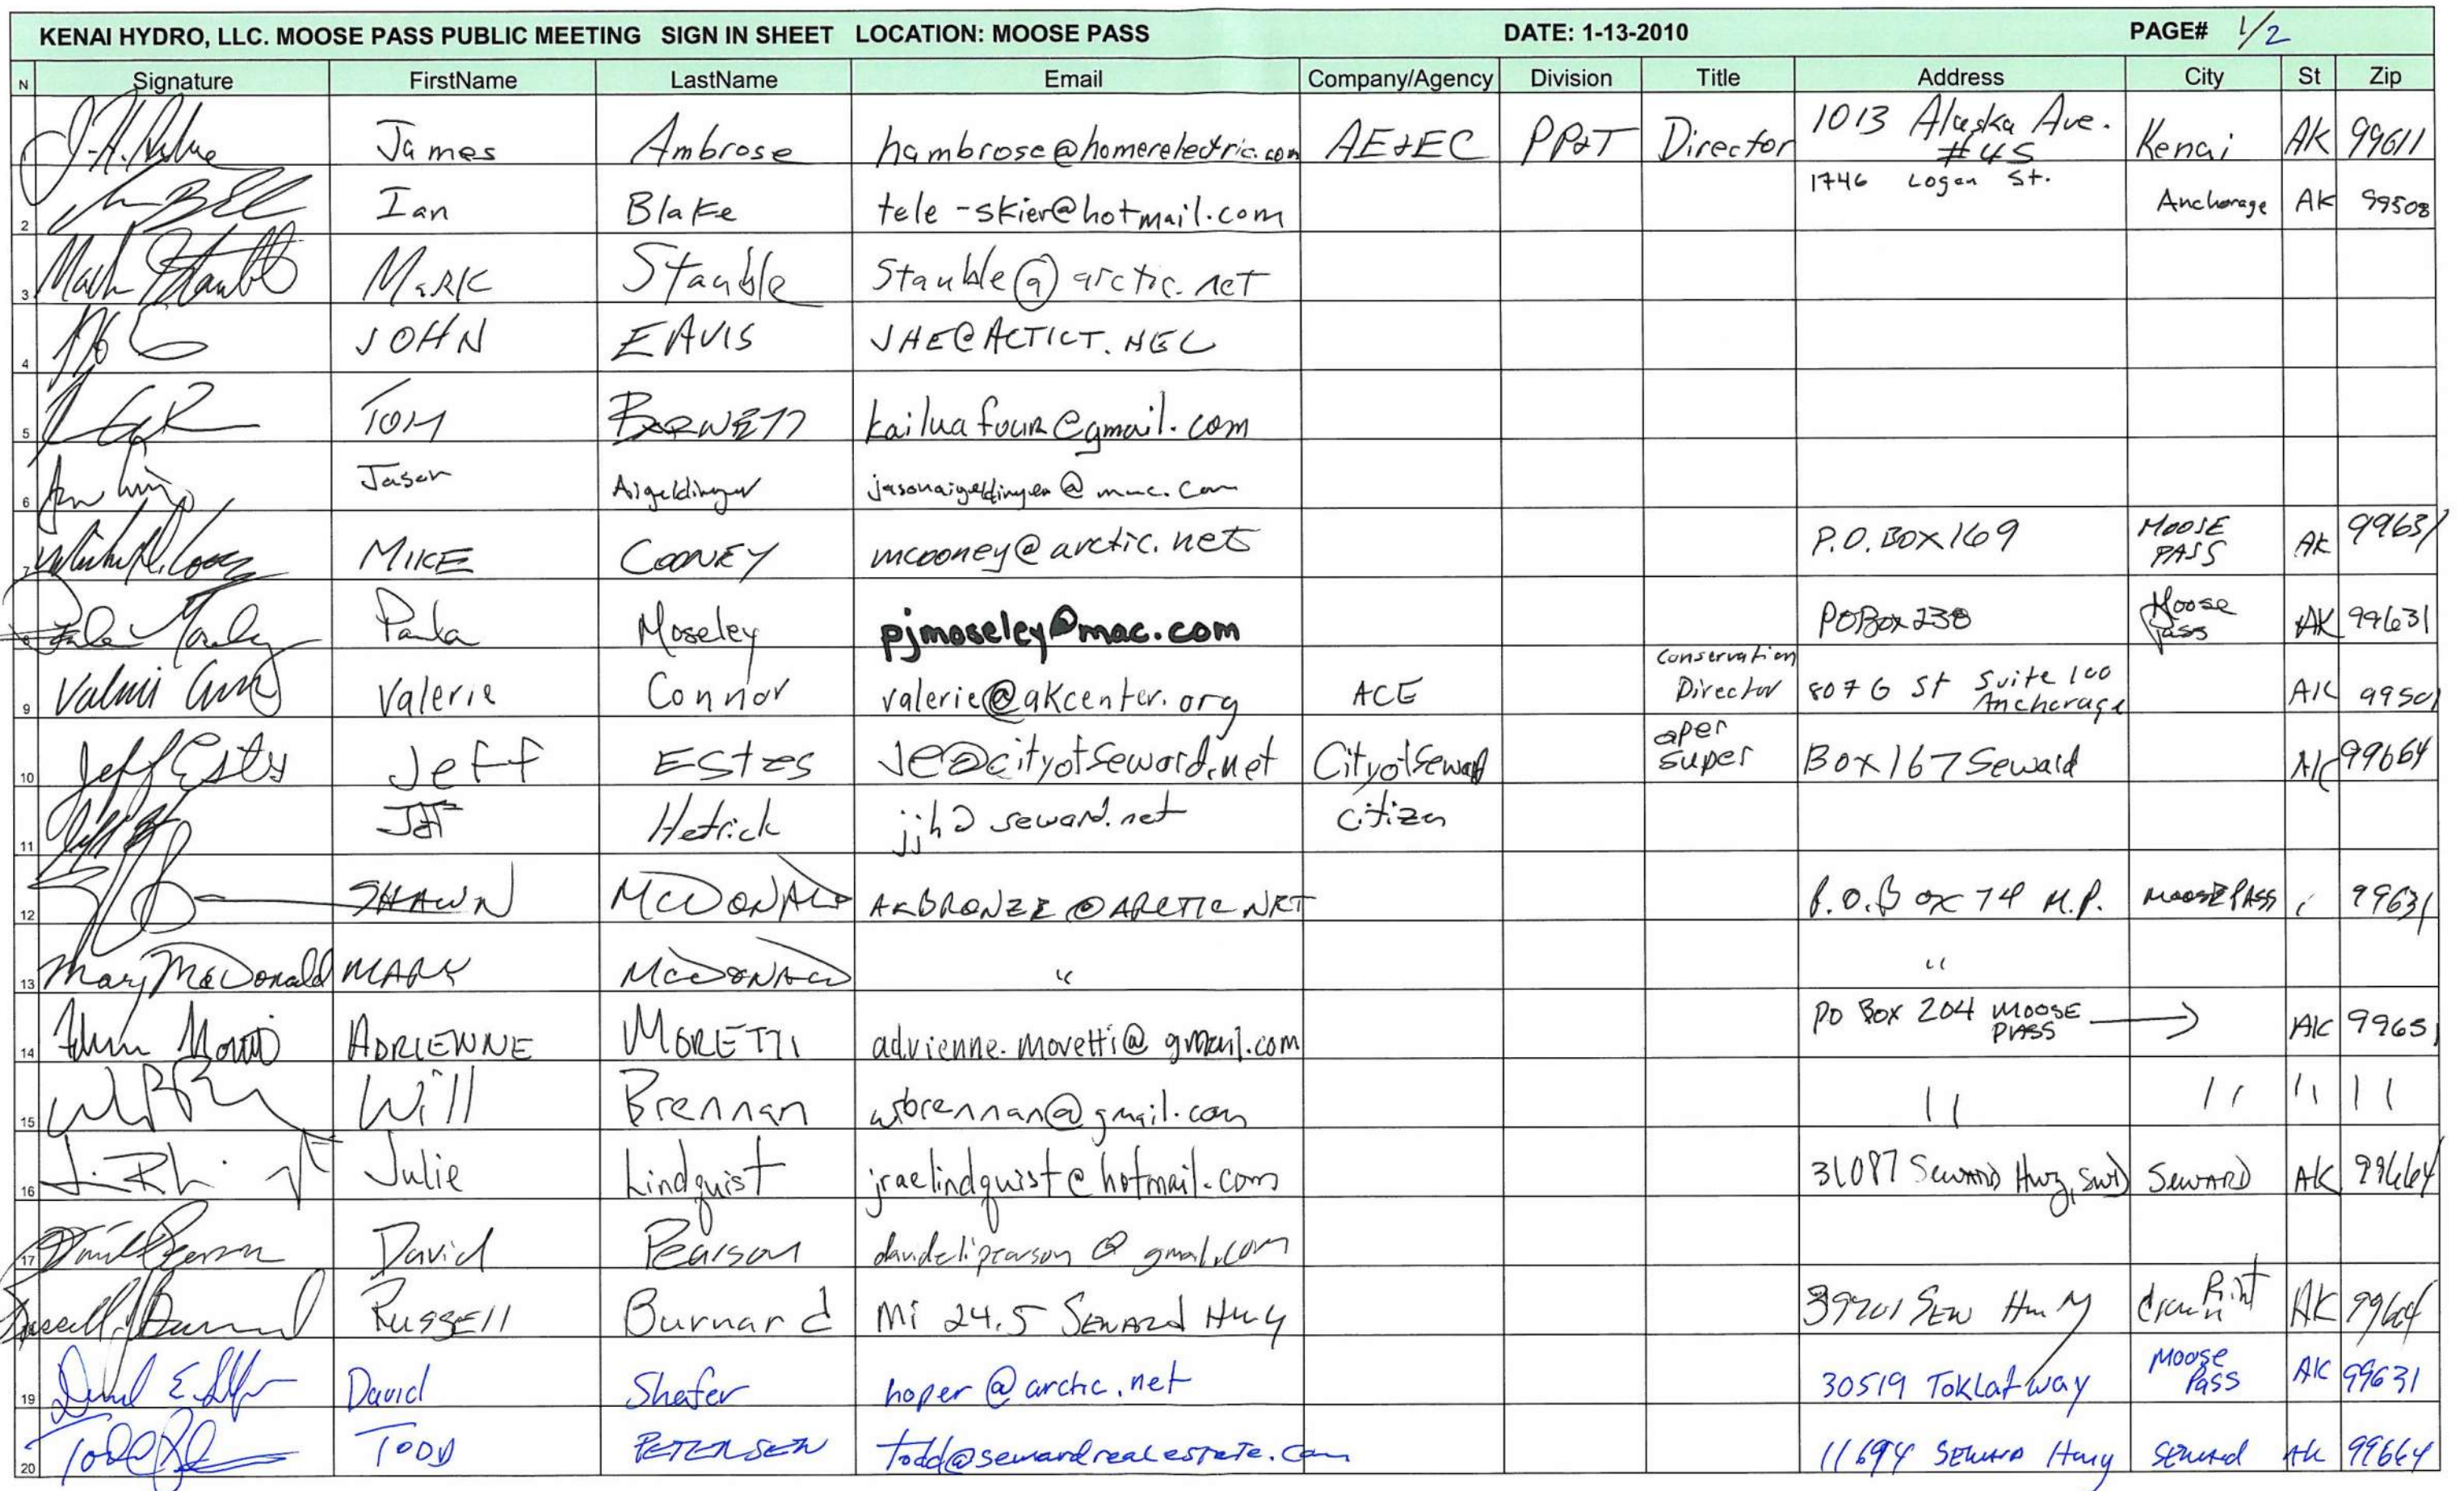 KENAI HYDRO, LLC. MOOSE PASS PUBLIC MEETING SIGN IN SHEET LOCATION: MOOSE PASS DATE: 1-13-2010 PAGE# 1/2
N Signature FirstName LastName Email Company/Agency Division Title Address City St Zip
1 James Ambrose hambrose@homerelectric.com AE&EC PP&T Director 1013 Alaska Ave. #45 Kenai AK 99611
2 Ian Blake tele-skier@hotmail.com 1746 Logan St. Anchorage AK 99508
3 Mark Stauble Stauble@arctic.net
4 JOHN EAVIS
5 TOM kailuafour@gmail.com
6 Jason Aigeldinger jasonaigeldinger@mac.com
7 MIKE COONEY mcooney@arctic.net P.O. BOX 169 MOOSE PASS AK 99631
8 Paula Moseley pjmoseley@mac.com PO Box 238 Moose Pass AK 99631
9 Valerie Connor valerie@akcenter.org ACE Conservation Director 807 G St Suite 100 Anchorage AK 99501
10 Jeff Estes Jeff Estes je@cityofseward.net City of Seward oper super Box 167 Seward AK 99664
11 Jeff Hetrick jjh@seward.net citizen
12 SHAWN MCDONALD AKBRONZE@ARCTIC NET P.O. Box 74 M.P. MOOSE PASS 99631
13 Mary McDonald MARY MCDONALD " "
14 ADRIENNE MORETTI adrienne.moretti@gmail.com PO Box 204 MOOSE PASS → AK 99631
15 Will Brennan wbrennan@gmail.com 11 11 11 11
16 Julie Lindquist jraelindquist@hotmail.com 31087 Seward Hwy, Swd SEWARD AK 99664
17 David Pearson davidelipearson@gmail.com
Russell Burnard Mi 24.5 SEWARD Hwy 39201 SEW Hwy Crown Point AK 99664
19 David Shafer hoper@arctic.net 30519 Toklat way Moose Pass AK 99631
20 TODD PETERSEN todd@sewardrealestate.com 11694 SEWARD Hwy SEWARD AK 99664